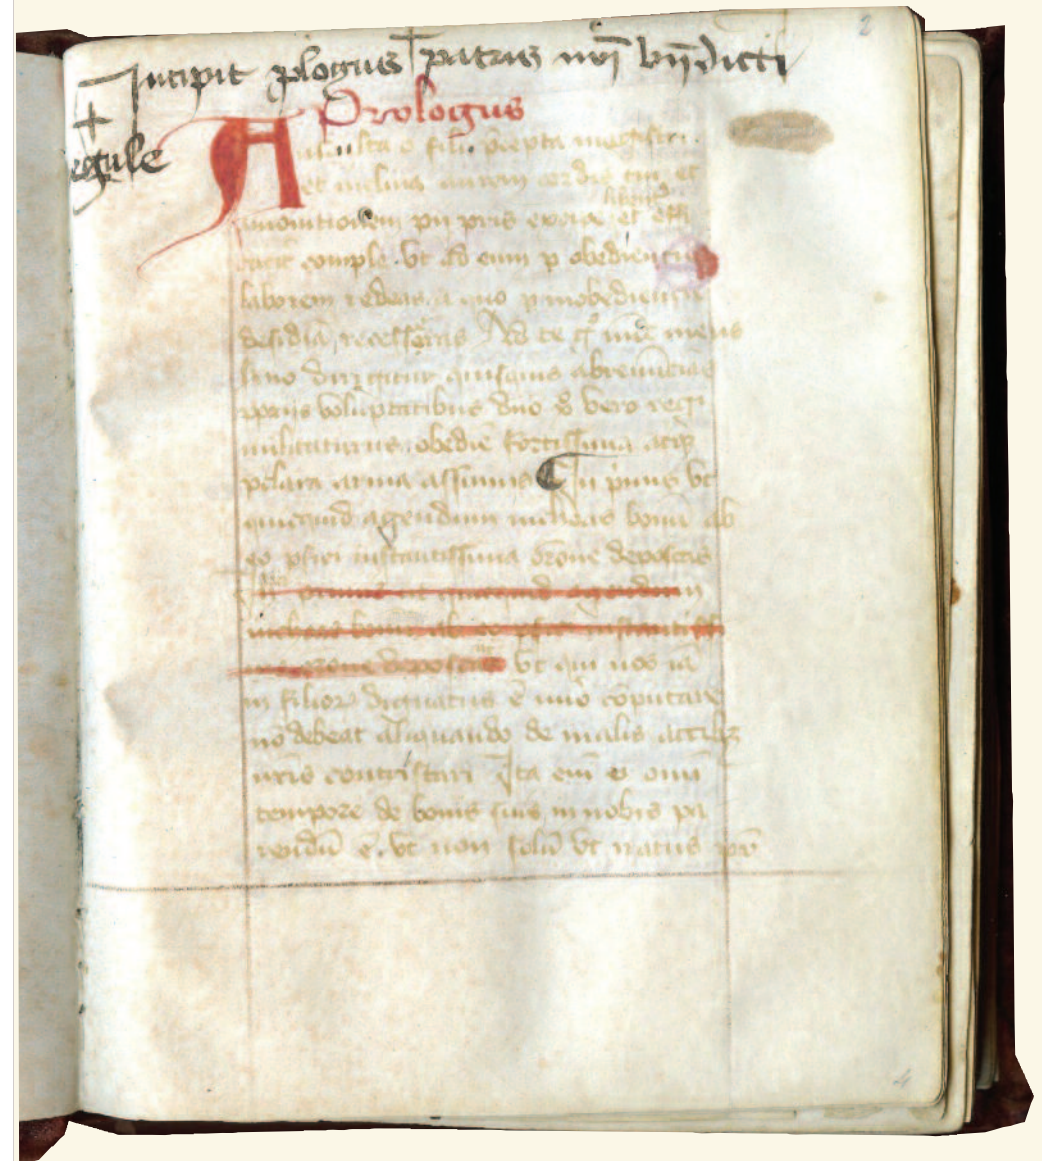 2
Incipit plogus † patris nrī bn̄dicti
† regule
Prologus
Ausculta o fili p̄cepta magistri.
et inclina aurem cordis tui et
libent̄
amonitionem pii pr̄is excipe et effi
caciť comple. vt ad eum p obedientie
laborem redeas. a quo p inobedientie
desidiā recesseras Ad te gͦ nūc meus
sermo dirigitur quisquis abrenūcias
ppriis voluptatibus dn̄o xp̄o vero regi
militaturus. obediē fortissima atqꝫ
pclara arma assumis In primis vt
quicquid agendum inchoas bonū ab
eo pfici instantissima or̄one deposcas
primis vt quicquid agendum
inchoas bonū ab eo pfici instantissi
ma or̄one deposcas vt qui nos iā
in filioꝝ dignatus ē nūo cōputare
nō debeat aliquando de malis actibꝫ
nr̄is contristari Ita eni ei omi
tempore de bonis suis in nobis pa
rendū ē. vt non solū vt iratus pr̄